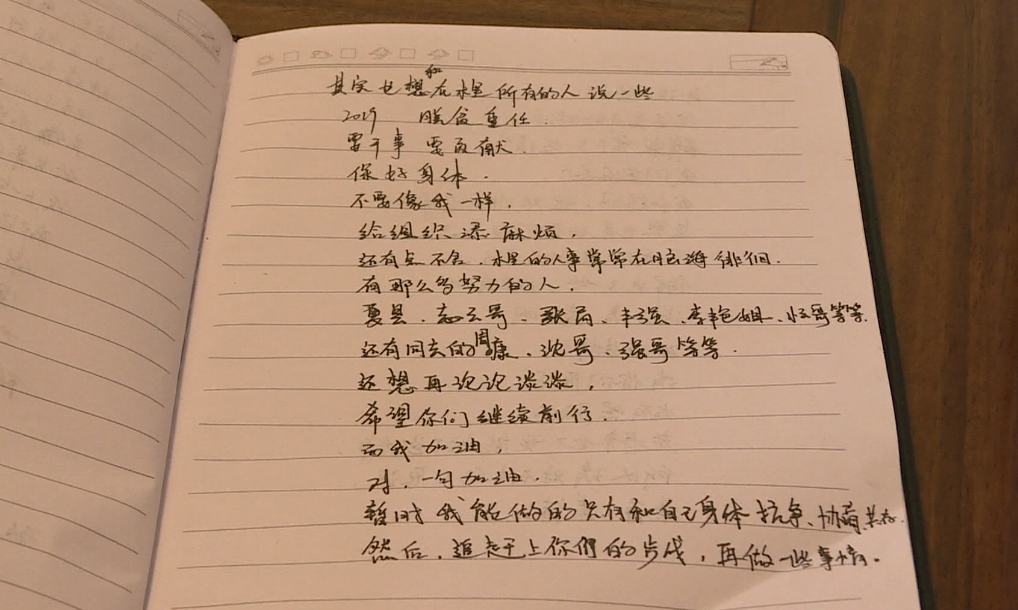 其实也想和在水里所有的人说一些
2019 脱贫重任.
要干事 要贡献.
保好身体.
不要像我一样,
给组织添麻烦,
还有点不舍,水里的人事常常在脑海徘徊.
有那么多努力的人,
夏县、志云哥、张局、丰强、李艳姐、恒哥等等.
还有回去的周康、沈哥、张哥等等.
还想再说说谈谈,
希望你们继续前行.
而我加油,
对,一句加油.
暂时我能做的只有和自己身体抗争、协商共存.
然后,追赶上你们的步伐,再做一些事情。